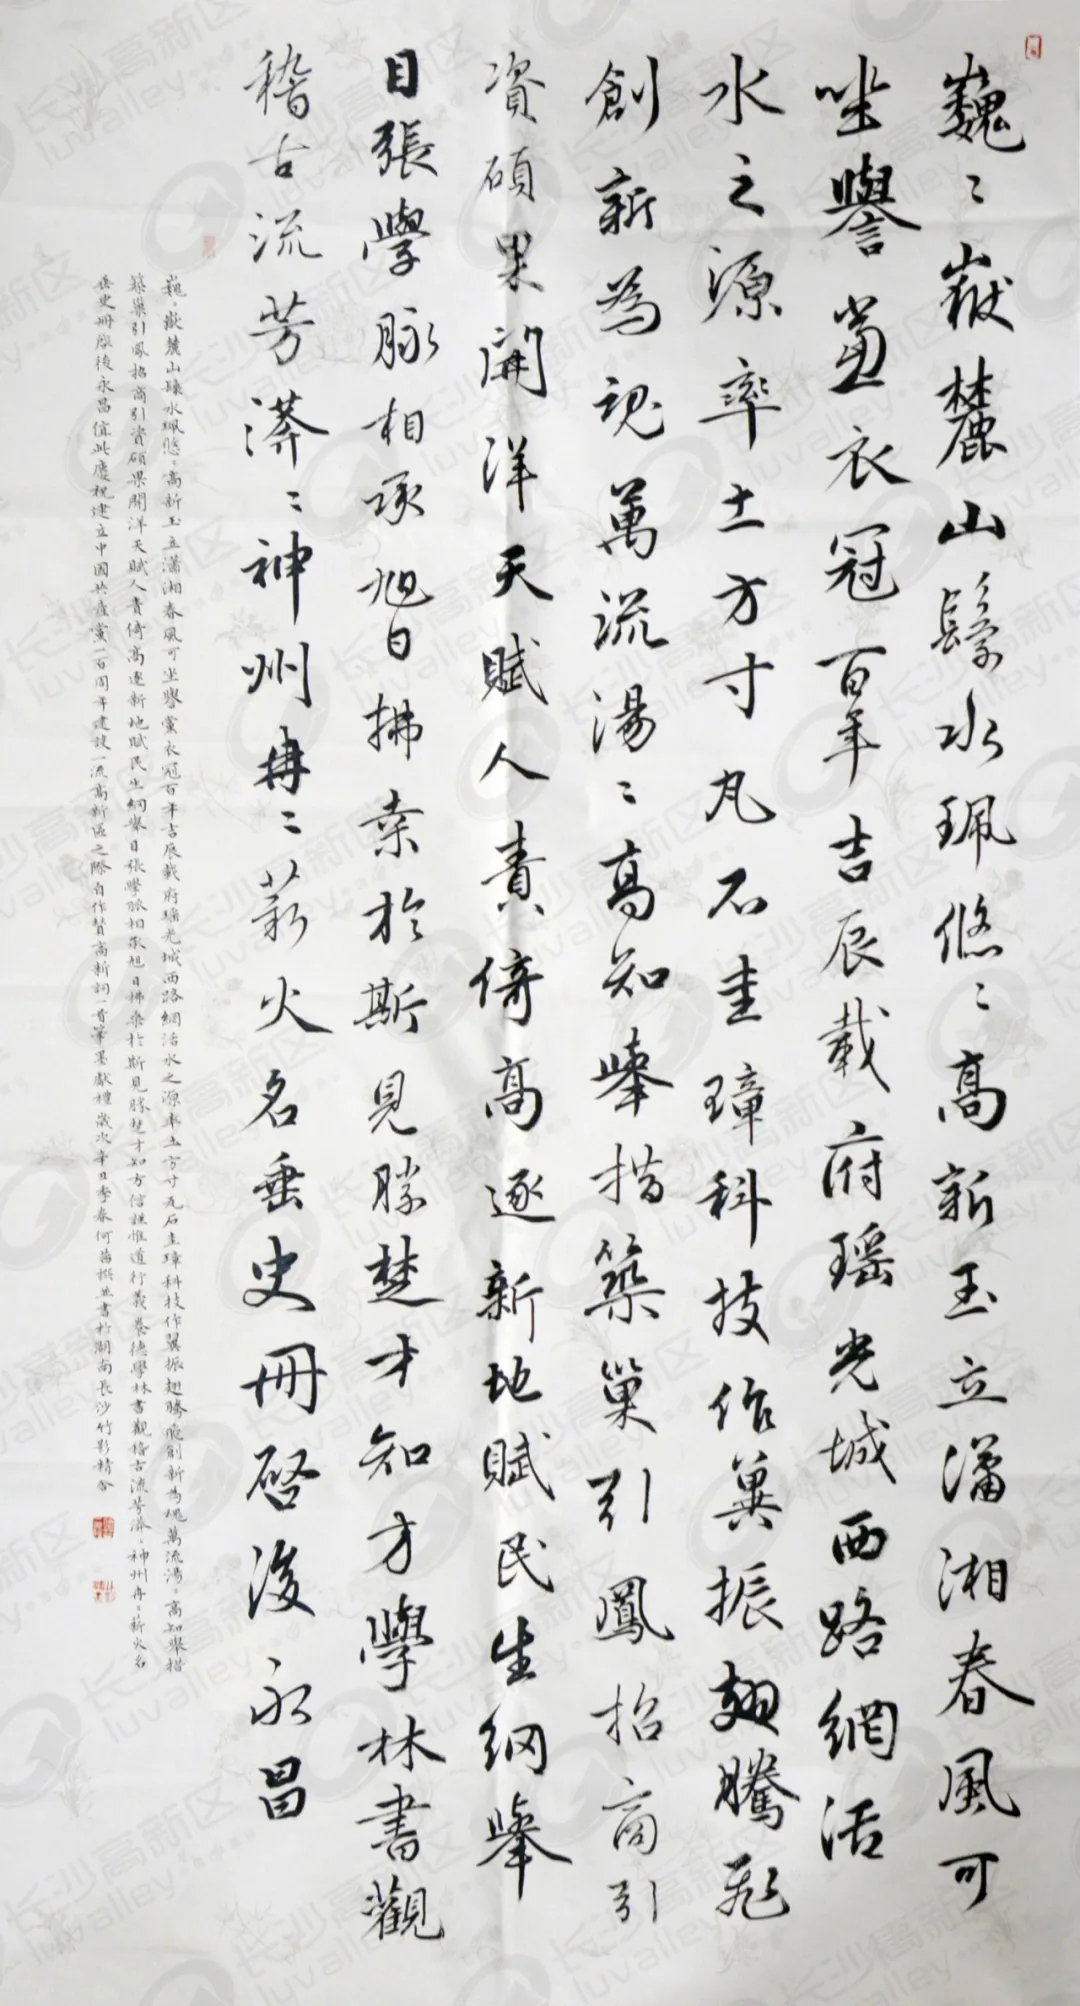 巍〻嶽麓山鬟水珮悠〻高新玉立瀟湘春風可
坐譽黨衣冠百年吉辰載府瑶光城西路網活
水之源率土方寸瓦石圭璋科技作翼振翅騰飛
創新為魂萬流湯〻高知舉措築巢引鳳招商引
資碩果開洋天賦人責倚高逐新地賦民生綱舉
目張學脉相承旭日拂桑於斯見勝楚才知方學林書觀
稽古流芳濟〻神州冉〻薪火名垂史冊啓後永昌
巍〻嶽麓山鬟水珮悠〻高新玉立瀟湘春風可坐譽黨衣冠百年吉辰載府瑶光城西路網活水之源率土方寸瓦石圭璋科技作翼振翅騰飛創新為魂萬流湯〻高知舉措
築巢引鳳招商引資碩果開洋天賦人責倚高逐新地賦民生綱舉目張學脉相承旭日拂桑於斯見勝楚才知方信誼惟道行義養德學林書觀稽古流芳濟〻神州冉〻薪火名
垂史冊啓後永昌值此慶祝建立中國共產黨一百周年建設一流高新區之際自作贊高新詞一首筆墨獻禮歲次辛丑季春何茁撰並書於湖南長沙竹影精舍
长沙高新区
luvalley